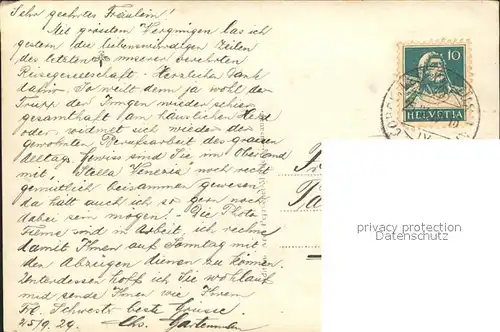 Sehr geehrtes Fräulein!
Mit grösstem Vergnügen las ich
gestern die liebenswürdigen Zeilen
des letzten unserer verehrten
Reisegesellschaft. Herzlichen Dank
dafür. So weilt denn ja wohl der
Trupp der Jungen wieder schier
gesamthaft am häuslichen Herd
oder widmet sich wieder der
gewohnten Berufsarbeit des grauen
Alltags. Gewiss sind Sie im Oberland
mit Stella Venezia noch recht
gemütlich beisammen gewesen
da hätt auch ich so gern noch
dabei sein mögen! Die Photo
Films sind in Arbeit, ich rechne
damit Ihnen auf Sonntag mit
den Abzügen dienen zu können.
Unterdessen hoff ich Sie wohlauf
und sende Ihnen wie Ihrem
Frl. Schwester beste Grüsse.
25/9.29. Chs.
10
HELVETIA
privacy protection
Datenschutz